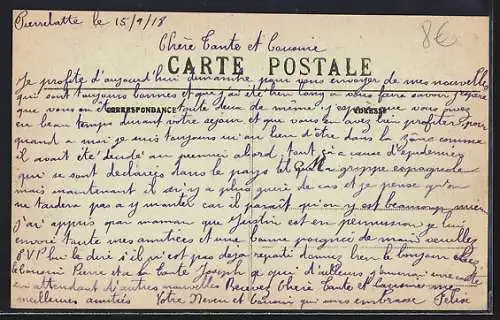 Pierrelatte le 15/9/18
8€
Chère Tante et Cousine
CARTE POSTALE
Je profite d'aujourd'hui dimanche pour vous envoyer de mes nouvelles
qui sont toujours bonnes et que j'ai été bien long à vous faire savoir j'espère
que vous en êtes toute deux de même, j'espère que vous avez
CORRESPONDANCE
ADRESSE
eu beau temps durant votre séjour et que vous en avez bien profiter pour
quand a moi je suis toujours au lieu d'être dans la zône comme
il avait été décidé au premier abord, tout ça a cause d'épidémies
qui se sont déclarées dans le pays tel que la grippe espagnole
mais maintenant il n'y a plus guère de cas et je pense qu'on
ne tardera pas a y monter car il parait qu'on y est beaucoup mieux
j'ai appris par maman que Justin est en permission je lui
envoie toute mes amitiées et une bonne poignée de main veuillez
S V P lui le dire s'il n'est pas déjà reparti donnez bien le bonjour chez
le Cousin Pierre et a la tante Joseph ce que d'ailleurs j'enverrai une carte
en attendant d'autres nouvelles Recevez Chère Tante et Cousine mes
meilleures amitiés Votre Neveu et Cousin qui vous embrasse Félix